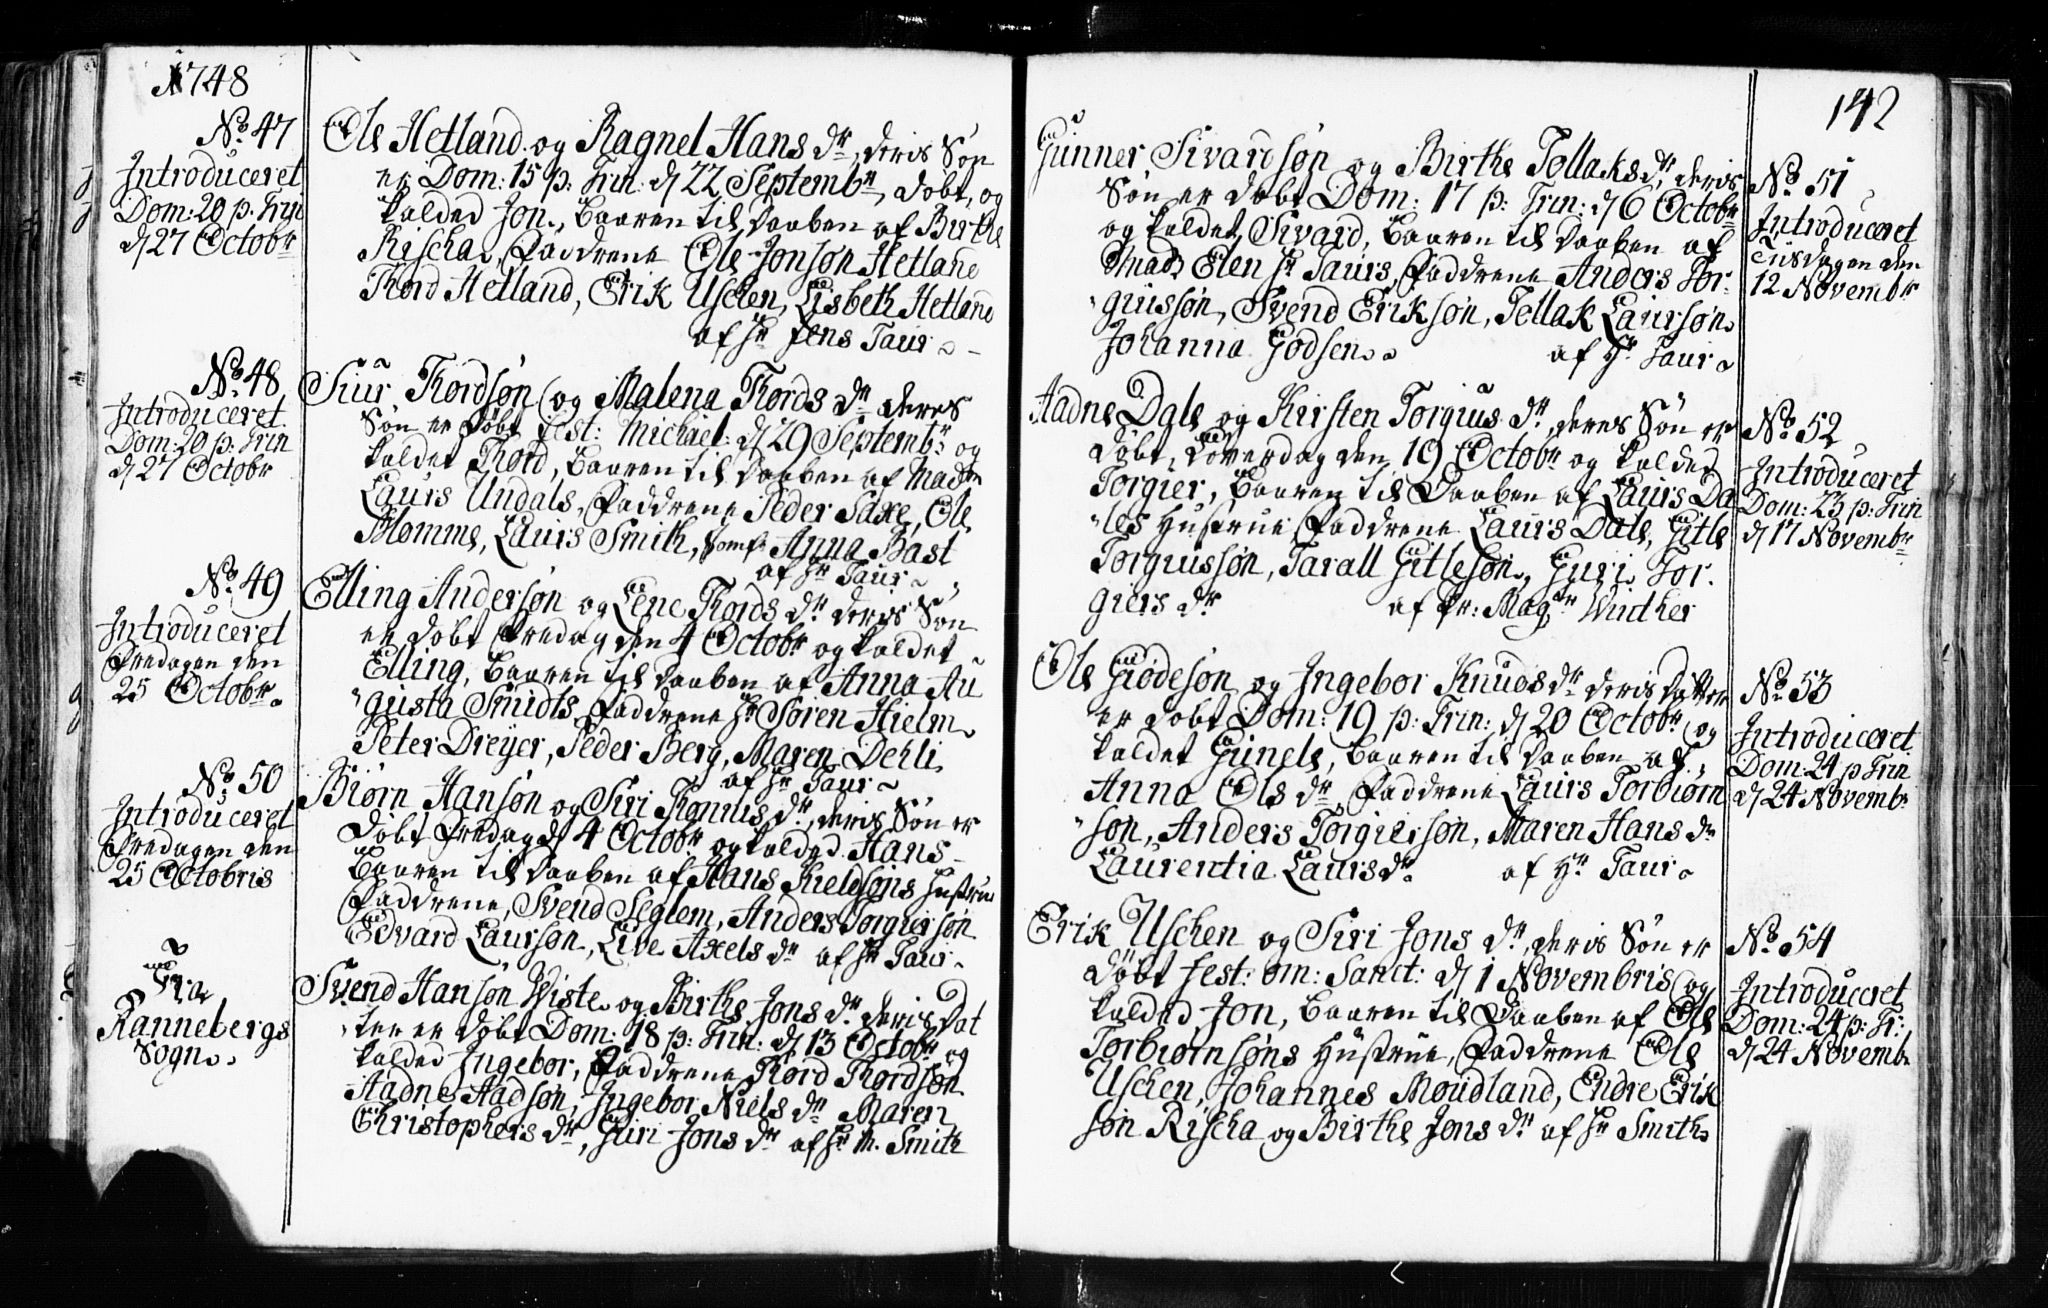 1748
No. 47
Introduceret
Dom: 20 p: Trin
d 27 Octobr
Ole Hetland og Ragnel Hans dr, deris Søn
er Dom: 15 p: Trin: d 22 Septembr, døbt, og
kalded Jon, Baaren til Daaben af Birthe
Rischa, Faddrene Ole Jonsøn Hetland
Thord Hetland, Erik Uschen, Lisbeth Hetland
af Hr Jens Taur
No. 48
Introduceret
Dom: 20 p: Trin
d 27 Octobr
Siur Thordsøn og Malena Thords dr deres
Søn er døbt Fest: Michael: d 29 Septembr og
kaldet Thord, Baaren til Daaben af Madm
Laurs Undals, Faddrene Peder Saxe, Ole
Momme, Laurs Smith, Jomf: Anna Bast
af Hr Taur
No. 49
Introduceret
Fredagen den
25 Octobr
Elling Andersøn og Lene Thords dr deris Søn
er døbt Fredag den 4 Octobr og kaldet
Elling, Baaren til Daaben af Anna Au
gusta Smidts, Faddrene Hr Søren Hielm
Peter Dreyer, Peder Berg, Maren Dehli
af Hr Taur
No. 50
Introduceret
Fredagen den
25 Octobris
Biørn Hansøn og Siri Thonnis dr, deris Søn er
døbt Fredag d 4 Octobr og kalded Hans
Baaren til Daaben af Hans Kieldsøns Hustrue
Faddrene, Svend Seglem, Anders Torgiersøn
Edvard Laursøn, Live Axels dr af Hr Taur
Fra
Rannebergs
Sogn
Svend Hansøn Wiste og Birthe Jons dr deris Dat
ter er døbt Dom: 18 p: Trin: d 13 Octobr og
kalded Ingebor, Faddrene Thord Thordsøn
Aadne Aadsøn, Ingebor Niels dr Maren
Christophers dr, Guri Jons dr af Hr M. Smith
142
Gunner Sivardsøn og Birthe Tollaks dr, deris
Søn er døbt Dom: 17 p: Trin: d 6 Octobr
og kaldet Sivard, Baaren til Daaben af
Mad: Elen Sr Taurs, Faddrene Anders Tor
giussøn, Svend Eriksøn, Tollak Laursøn
Johanna Godsen af Hr Taur
No. 51
Introduceret
Tiisdagen den
12 Novembr
Aadne Dale og Kirsten Torgius dr, deres Søn er
døbt, Løverdag den 19 Octobr og kaldet
Torgier, Baaren til Daaben af Laurs Da
les Hustrue, Faddrene Laurs Dale, Gitle
Torgiussøn, Tarall Gitlesøn, Guri Tor
giers dr af Pr: Magr Winther
No. 52
Introduceret
Dom: 23 p: Trin
d 17 Novembr
Ole Giødesøn og Ingebor Knuds dr deris Datter
er døbt Dom: 19 p: Trin: d 20 Octobr og
kaldet Gunele, Baaren til Daaben af
Anna Ols dr, Faddrene Laurs Torbiørn
søn, Anders Torgiersøn, Maren Hans dr
Laurentia Laurs dr af Hr Taur
No. 53
Introduceret
Dom: 24 p Trin
d 24 Novembr
Erik Uschen og Siri Jons dr, deris Søn er
døbt Fest: Om: Sanct: d 1 Novembris og
kalded Jon, Baaren til Daaben af Ole
Torbiørnsøns Hustrue, Faddrene Ole
Uschen, Johannes Moudland, Endre Erik
søn Rischa og Birthe Jons dr af Hr Smith
No. 54
Introduceret
Dom: 24 p: Tr:
d 24 Novembr